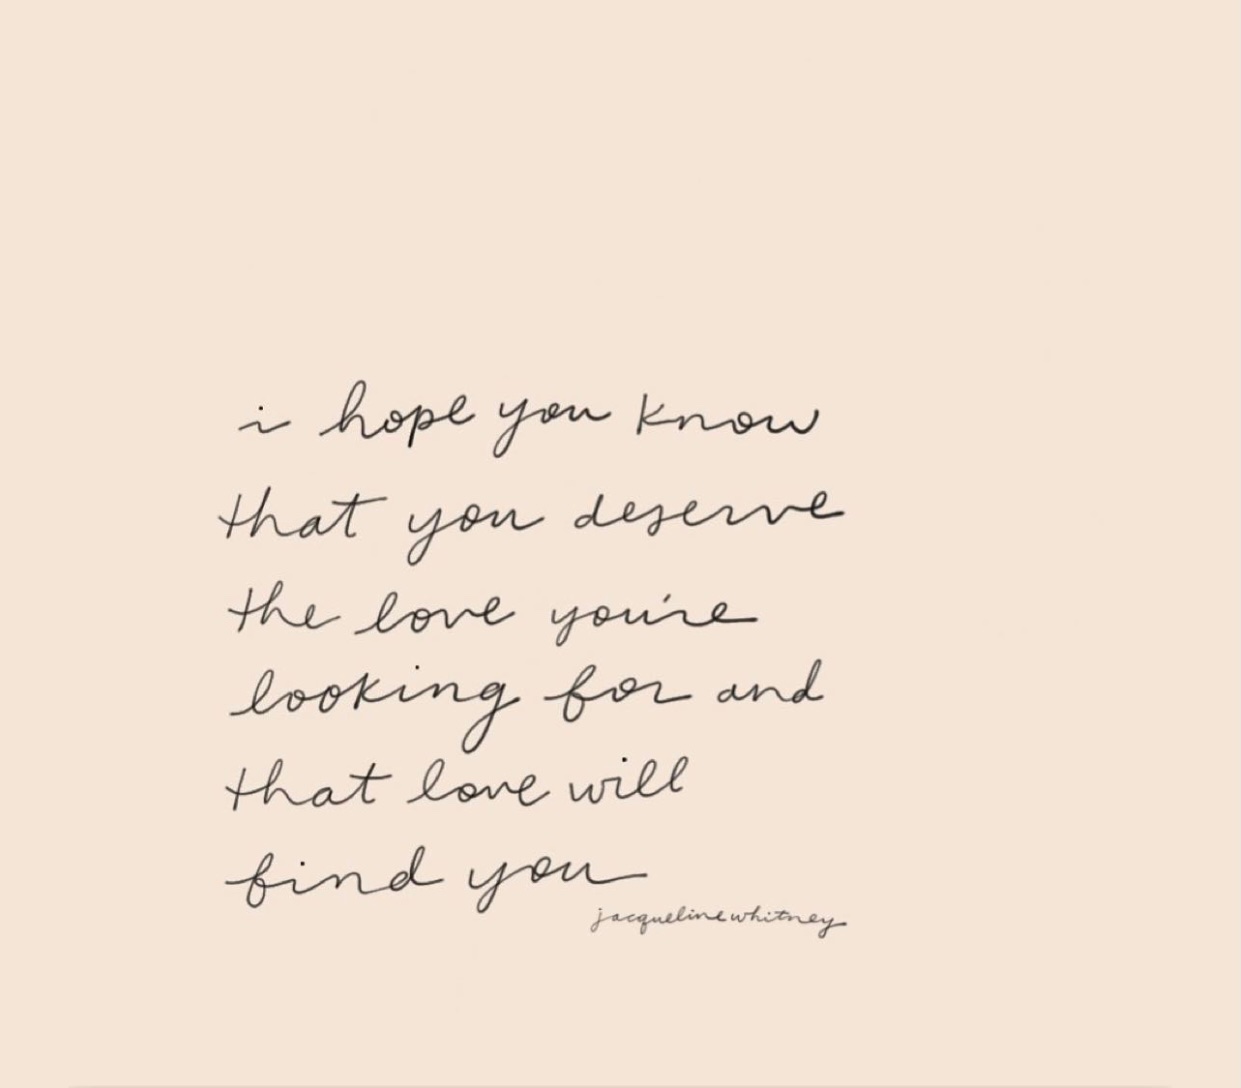 i hope you know
that you deserve
the love you're
looking for and
that love will
find you
jacquelinewhitney